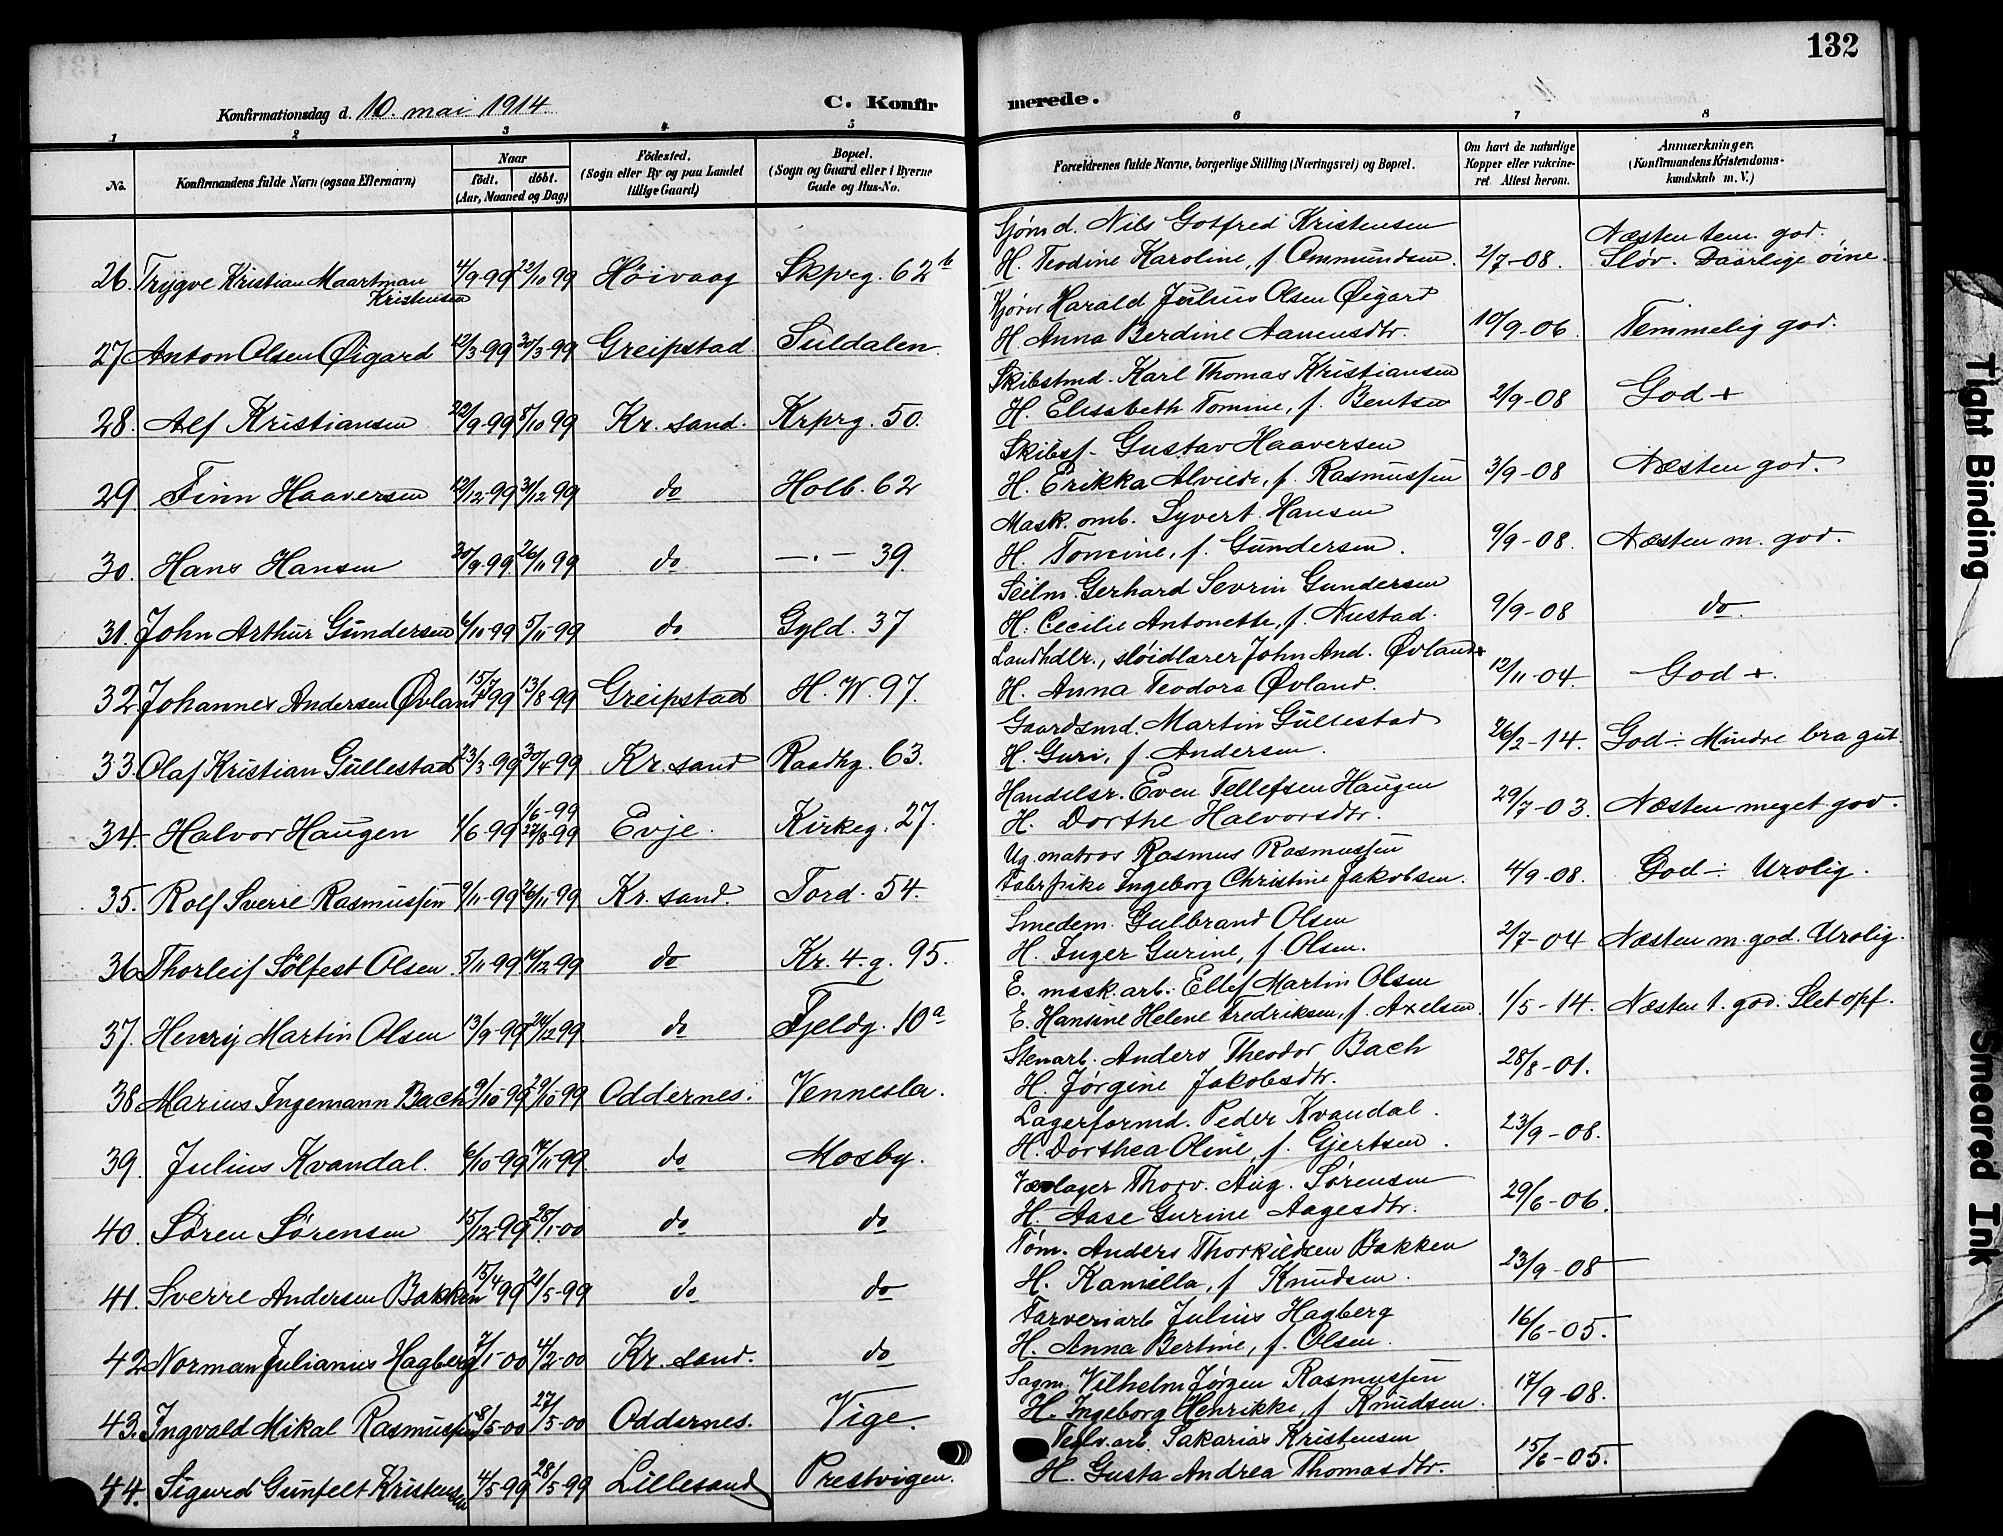 132
Konfirmationsdag d. 10. mai 1914.
C. Konfirmerede.
1 2 3 4 5 6 7 8
No. Konfirmandens fulde Navn (ogsaa Efternavn) Naar født. døbt. (Aar, Maaned og Dag) Födested. (Sogn eller By og paa Landet tillige Gaard) Bopæl. (Sogn og Gaard eller i Byerne Gade og Hus-No. Forældrenes fulde Navne, borgerlige Stilling (Næringsvei) og Bopæl. Om havt de naturlige Kopper eller vakcineret Attest herom. Anmærkninger. (Konfirmandens Kristendomskundskab m. V.)
26. Trygve Kristian Maartman Kristensen 4/9-99 22/10 99 Höivaag Skprg. 62b Sjömd. Nils Gotfred Kristensen H. Teodine Karoline, f Ommundsen. 2/7-08. Næsten tem. god. Sløv. Daarlige øine.
27 Anton Olsen Øigard 12/3-99 30/3-99 Greipstad Suldalen. Kjörer Harald Julius Olsen Øigard H. Anna Berdine Aanensdtr. 10/9-06. Temmelig god.
28. Alf Kristiansen 22/9-99 8/10 99 Kr. sand. Krprg. 50. Skibstmd. Karl Thomas Kristiansen H. Elisabeth Tomine, f. Bentsen 2/9-08 God +
29. Finn Haaversen 12/12-99 31/12 99 do Holb. 62 Skibsf. Gustav Haaversen H. Erikka Alvide, f. Rasmussen 3/9-08 Næsten god.
30. Hans Hansen 30/9-99. 26/11 99 do — . — 39. Mask. omb. Syvert Hansen H. Tomine, f. Gundersen. 9/9-08. Næsten m. god.
31. John Arthur Gundersen 6/10-99 5/11-99 do Gyld. 37 Seilm. Gerhard Sevrin Gundersen H. Cecilie Antonette, f. Nustad. 9/9-08 do.
32. Johannes Andersen Øvland 15/7 99 13/8-99 Greipstad H. W. 97. Landhdlr., sløidlærer John And. Øvland H. Anna Teodora Øvland. 12/11-04. God +.
33 Olaf Kristian Gullestad 23/3-99 30/4-99 Kr. sand Raadhg. 63. Gaardsmd. Martin Gullestad H. Guri, f Andersen. 26/2-14. God ÷ Mindre bra gut.
34. Halvor Haugen 1/6-99 1/6-99 27/8-99 Evje. Kirkeg. 27. Handelsr. Even Tellefsen Haugen H. Dorthe Halvorsdtr. 29/7-03. Næsten meget god.
35. Rolf Sverre Rasmussen 9/11-99 26/11 99 Kr. sand. Tord. 54. Ug. matros Rasmus Rasmussen Fabrpike Ingeborg Christine Jakobsen. 4/9-08. God ÷ Urolig.
36 Thorleif Sölfest Olsen 5/11-99 14/12-99 do Kr. 4. g. 95. Smedem. Gulbrand Olsen H. Inger Gurine, f Olsen. 2/7-04 Næsten m. god. Urolig.
37. Henry Martin Olsen 13/9-99 24/12 99. do Fjeldg. 10a E. mask. arb. Ellef Martin Olsen E. Hansine Helene Fredriksen, f. Axelsen. 1/5-14. Næsten t. god. Slet opf.
38. Marius Ingemann Bach 9/10-99 29/10 99 Oddernes. Vennesla. Stenarb. Anders Theodor Bach H. Jørgine Jakobsdtr. 28/8-01.
39. Julius Kvandal. 6/10-99 12/11-99. do Mosby. Lagerformd. Peder Kvandal. H. Dorthea Oline, f. Gjertsen. 23/9-08.
40. Søren Sørensen 15/12-99 28/1-00 do do Thorv. Aug. Sørensen H. Aase Gurine Aagesdtr. 29/6-06.
41. Sverre Andersen Bakken 15/4 99 21/5-99 do do Töm. Anders Thorkildsen Bakken H. Kamilla, f Knudsen. 23/9-08
42 Norman Julianius Hagberg 7/1-00 4/2-00 Kr. sand. do Farveriarb Julius Hagberg H. Anna Bertine, f. Olsen. 16/6-05.
43. Ingvald Mikal Rasmussen 8/5-00 27/5-00 Oddernes. Vige. Sagm. Vilhelm Jørgen Rasmussen H. Ingeborg Henrikke, f Knudsen. 17/9-08.
44. Sigurd Gunfelt Kristensen 4/5-99 28/5-99 Lillesand Prestvigen. arb. Sakarias Kristensen H. Gusta Andrea Thomasdtr. 15/6-05.
Tight Binding
Smeared Ink